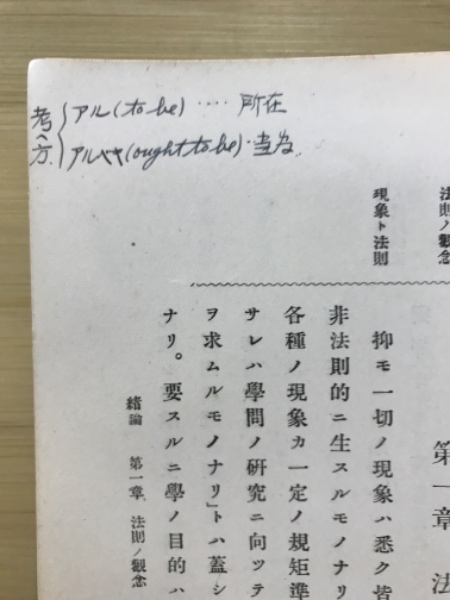 考へ方
アル(to be)‥‥所在
アルベキ(ought to be)‥当為
法則ノ觀念
現象ト法則
第一章 法
抑モ一切ノ現象ハ悉ク皆
非法則的ニ生スルモノナリ
各種ノ現象カ一定ノ規矩準
サレハ學問ノ硏究ニ向ツテ
ヲ求ムルモノナリ」トハ蓋シ
ナリ。要スルニ學ノ目的ハ
緖論 第一章 法則ノ觀念